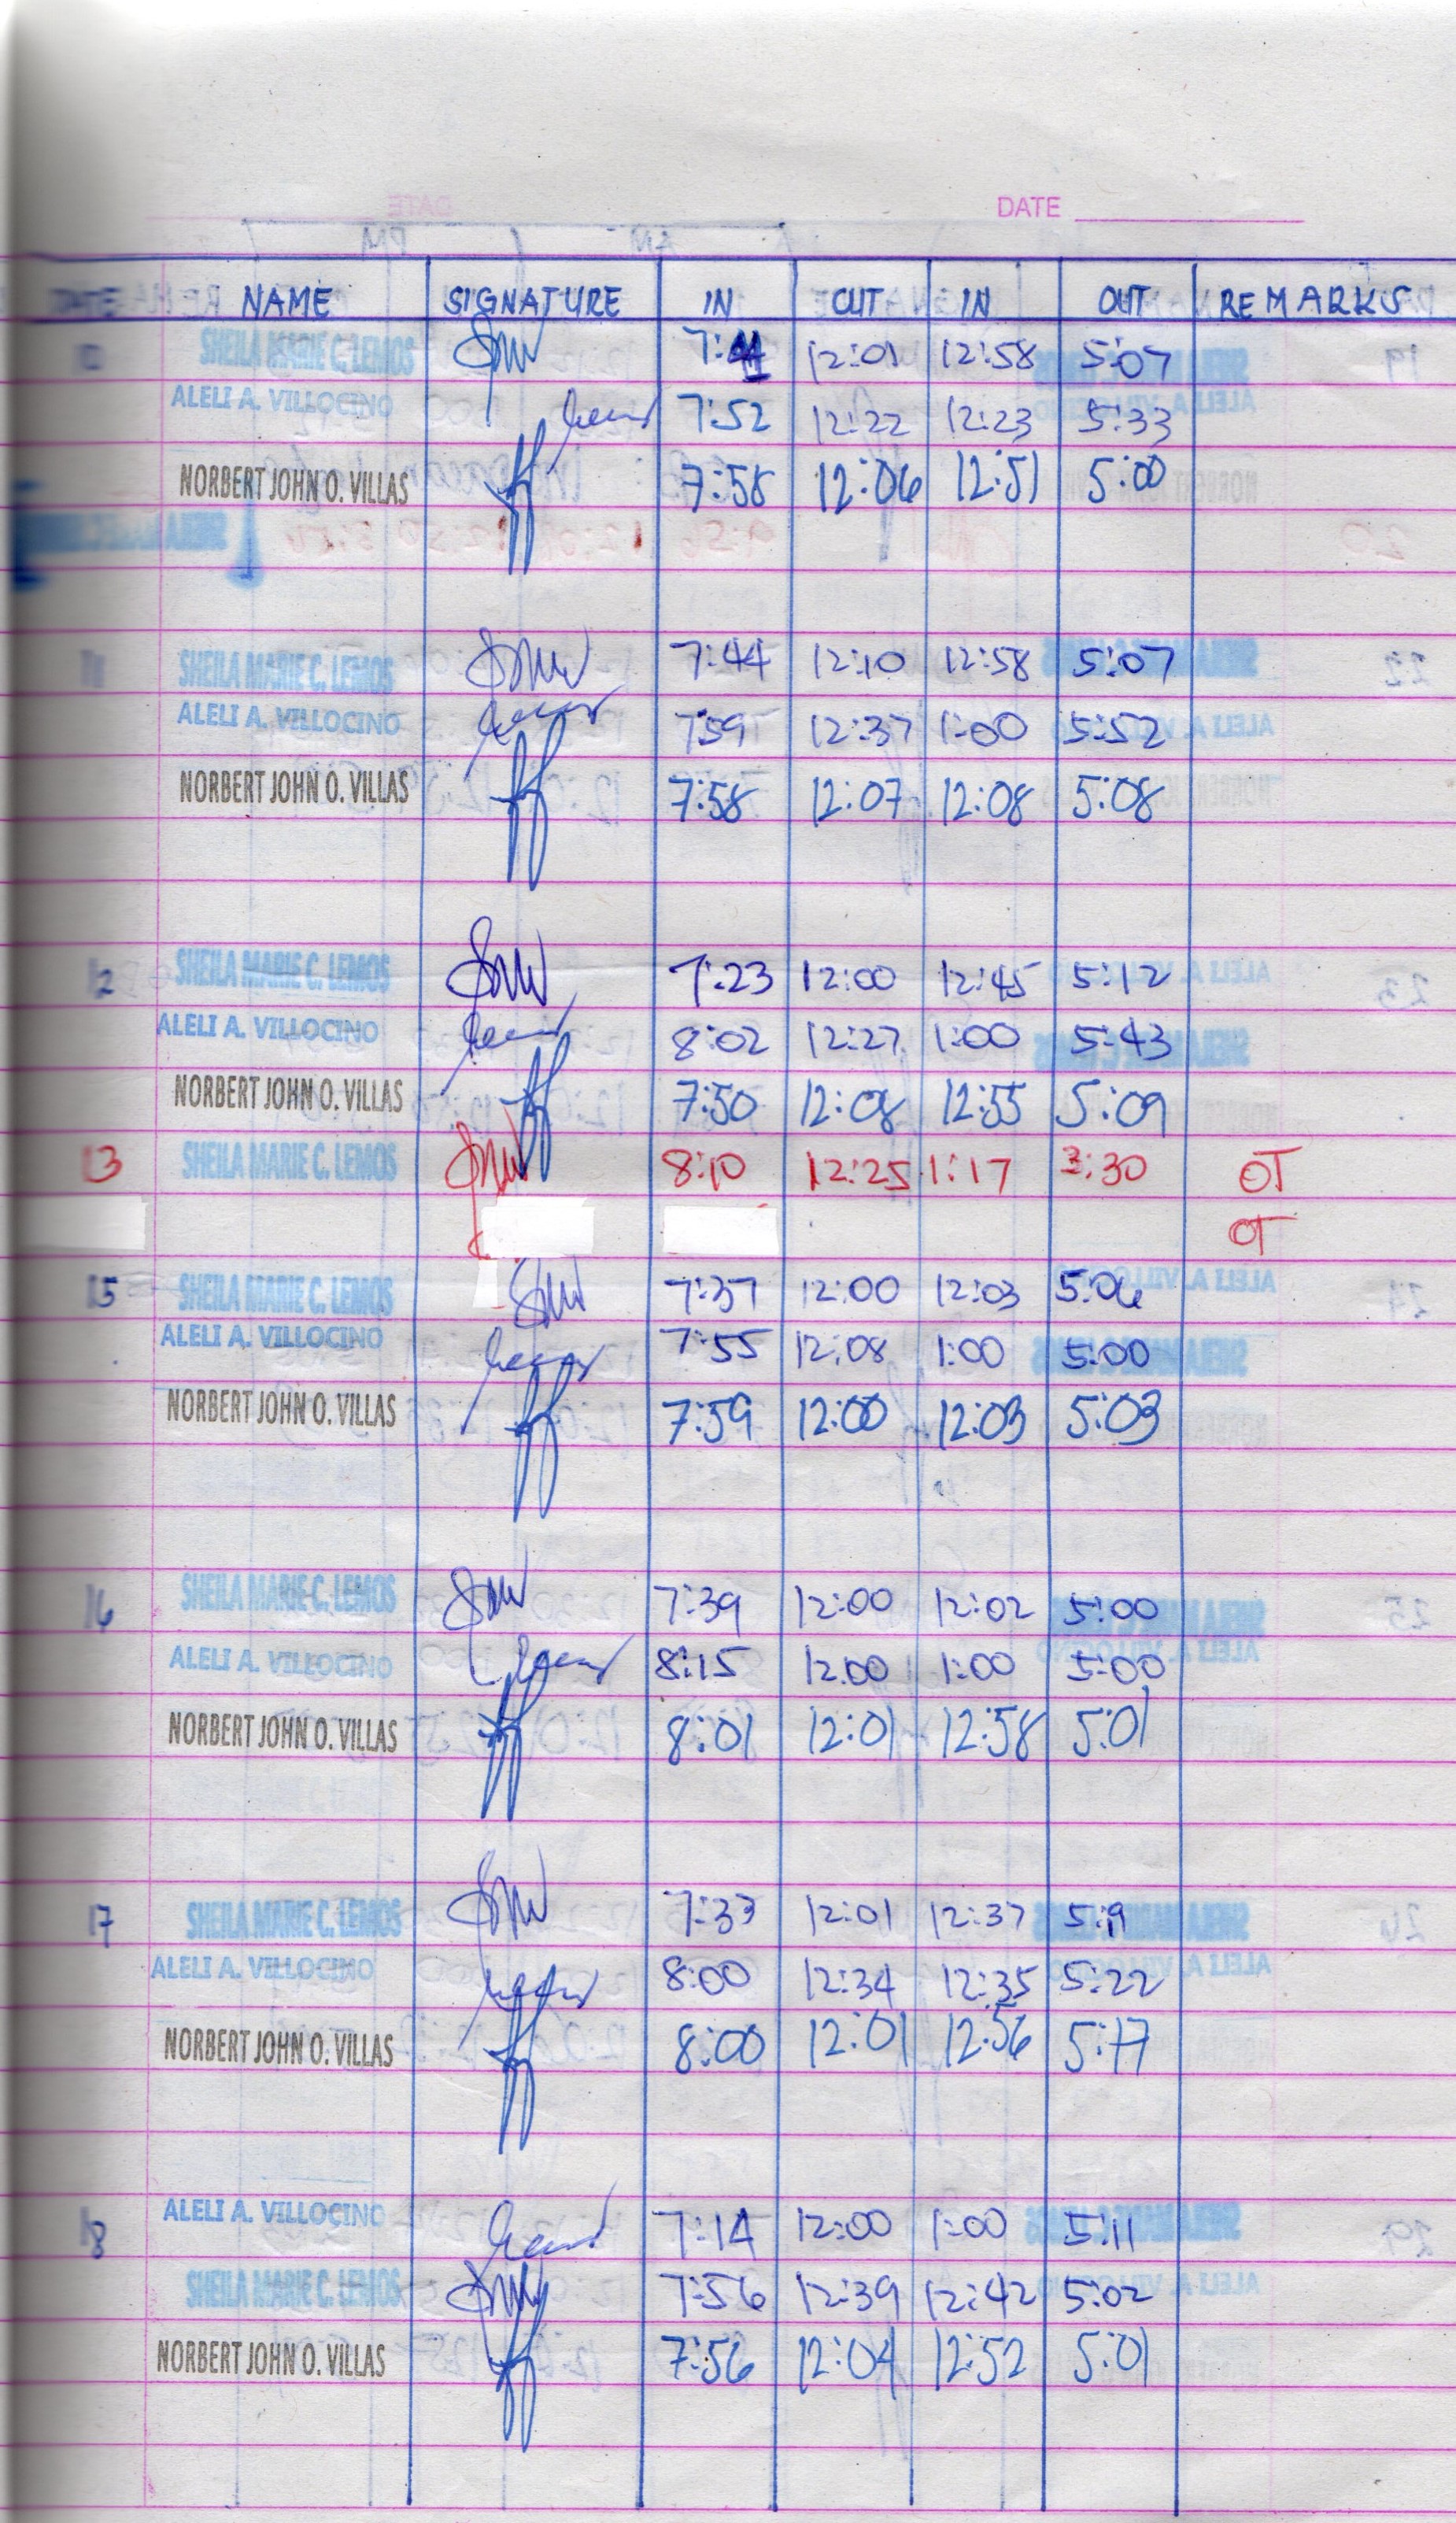 DATE
DATE NAME SIGNATURE IN OUT IN OUT REMARKS
10 SHEILA MARIE C. LEMOS 12:01 12:58 5:07
ALELI A. VILLOCINO 7:52 12:22 12:23 5:33
NORBERT JOHN O. VILLAS 7:58 12:06 12:51 5:00
11 SHEILA MARIE C. LEMOS 7:44 12:10 12:58 5:07
ALELI A. VILLOCINO 7:59 12:37 1:00 5:52
NORBERT JOHN O. VILLAS 7:58 12:07 12:08 5:08
12 SHEILA MARIE C. LEMOS 7:23 12:00 12:45 5:12
ALELI A. VILLOCINO 8:02 12:27 1:00 5:43
NORBERT JOHN O. VILLAS 7:50 12:08 12:55 5:09
13 SHEILA MARIE C. LEMOS 8:10 12:25 1:17 3:30 OT
OT
15 SHEILA MARIE C. LEMOS 7:37 12:00 12:03 5:06
ALELI A. VILLOCINO 7:55 12:08 1:00 5:00
NORBERT JOHN O. VILLAS 7:59 12:00 12:03 5:03
16 SHEILA MARIE C. LEMOS 7:39 12:00 12:02 5:00
ALELI A. VILLOCINO 8:15 12:00 1:00 5:00
NORBERT JOHN O. VILLAS 8:01 12:01 12:58 5:01
17 SHEILA MARIE C. LEMOS 7:33 12:01 12:37 5:19
ALELI A. VILLOCINO 8:00 12:34 12:35 5:22
NORBERT JOHN O. VILLAS 8:00 12:01 12:56 5:17
18 ALELI A. VILLOCINO 7:14 12:00 1:00 5:11
SHEILA MARIE C. LEMOS 7:56 12:39 12:42 5:02
NORBERT JOHN O. VILLAS 7:56 12:04 12:52 5:01